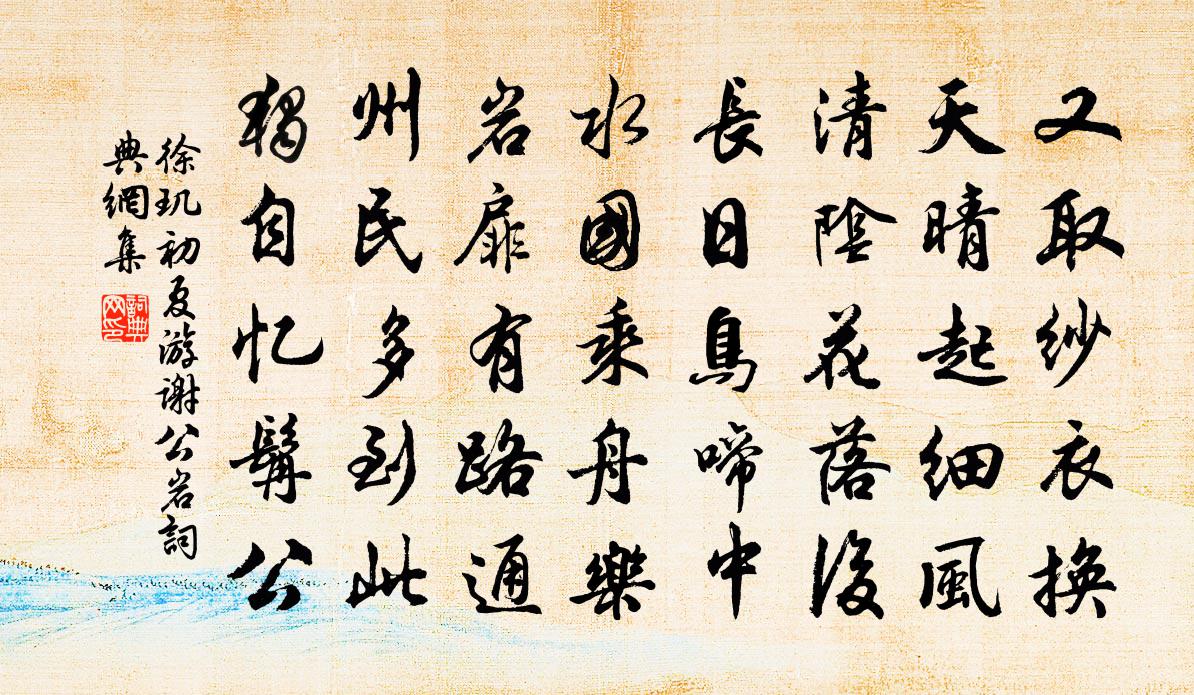 又取紗衣換
天晴起細風
清陰花落後
長日鳥啼中
水國乘舟樂
岩扉有路通
州民多到此
獨自忆髯公
徐玑初夏游谢公岩詞
典網集
詞典
网印